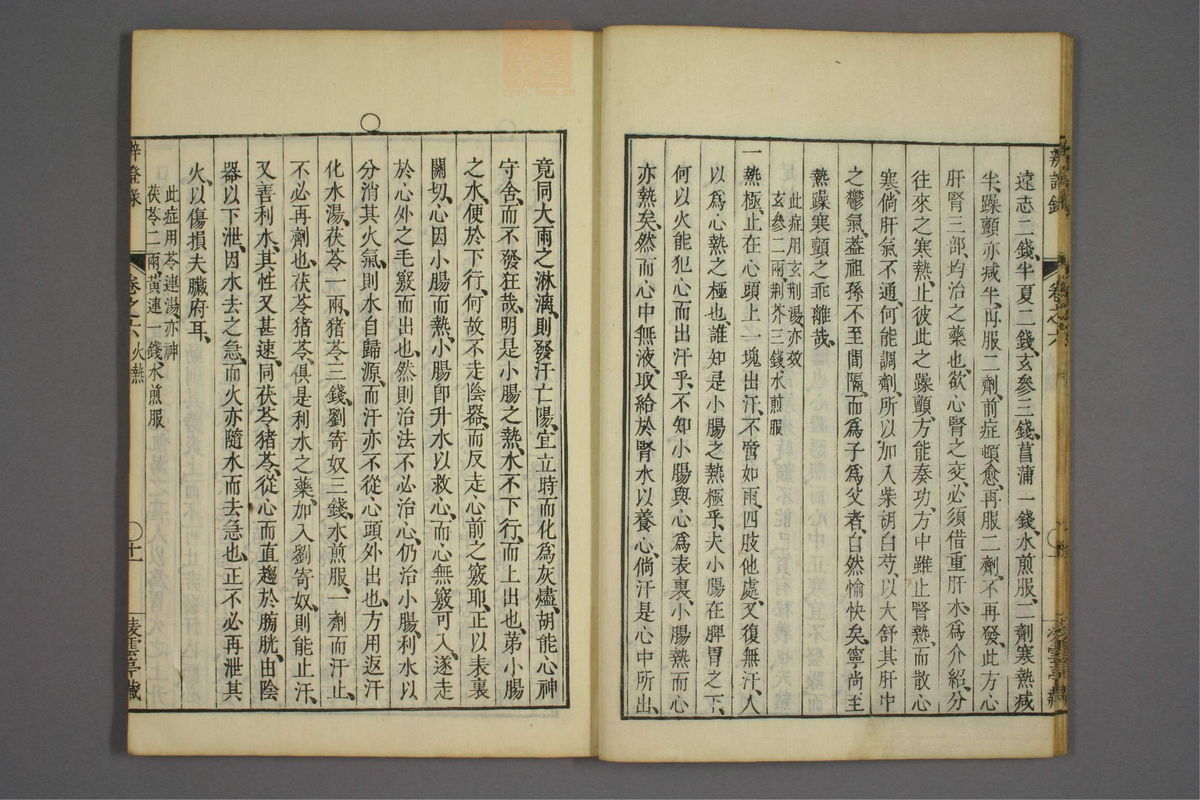 遠志二錢、半夏二錢、玄參三錢、菖蒲一錢、水煎服、二劑寒熱減
半、躁顫亦減半、再服二劑、前症頓愈、再服二劑、不再發、此方心
肝腎三部、均治之藥也、欲心腎之交、必須借重肝木、為介紹、分
往來之寒熱、止彼此之躁顫、方能奏功、方中雖止腎熱、而散心
寒、倘肝氣不通、何能調劑、所以加入柴胡白芍、以大舒其肝中
之鬱氣、蓋祖孫不至間隔、而為子為父者、自然愉快矣、寧尚至
熱躁寒顫之乖離哉、
此症用玄荆湯亦效
玄參二兩、荆芥三錢、水煎服
一熱極、止在心頭上一塊出汗、不啻如雨、四肢他處、又復無汗、人
以為心熱之極也、誰知是小腸之熱極乎、夫小腸在脾胃之下、
何以火能犯心而出汗乎、不知小腸與心為表裏、小腸熱而心
亦熱矣、然而心中無液、取給於腎水以養心、倘汗是心中所出、
竟同大雨之淋漓、則發汗亡陽、宜立時而化為灰燼、胡能心神
守舍、而不發狂哉、明是小腸之熱、水不下行、而上出也、弟小腸
之水、便於下行、何故不走陰器、而反走心前之竅耶、正以表裏
關切、心因小腸而熱、小腸即升水以救心、而心無竅可入、遂走
於心外之毛竅而出也、然則治法不必治心、仍治小腸、利水以
分消其火氣、則水自歸源、而汗亦不從心頭外出也、方用返汗
化水湯、茯苓一兩、猪苓三錢、劉寄奴三錢、水煎服、一劑而汗止、
不必再劑也、茯苓猪苓、俱是利水之藥、加入劉寄奴、則能止汗、
又善利水、其性又甚速、同茯苓猪苓、從心而直趨於膀胱、由陰
器以下泄、因水去之急、而火亦隨水而去急也、正不必再泄其
火、以傷損夫臟府耳、
此症用苓連湯、亦神
茯苓二兩、黃連一錢、水煎服
卷之六 火熱
〇十一
凌雲亭藏